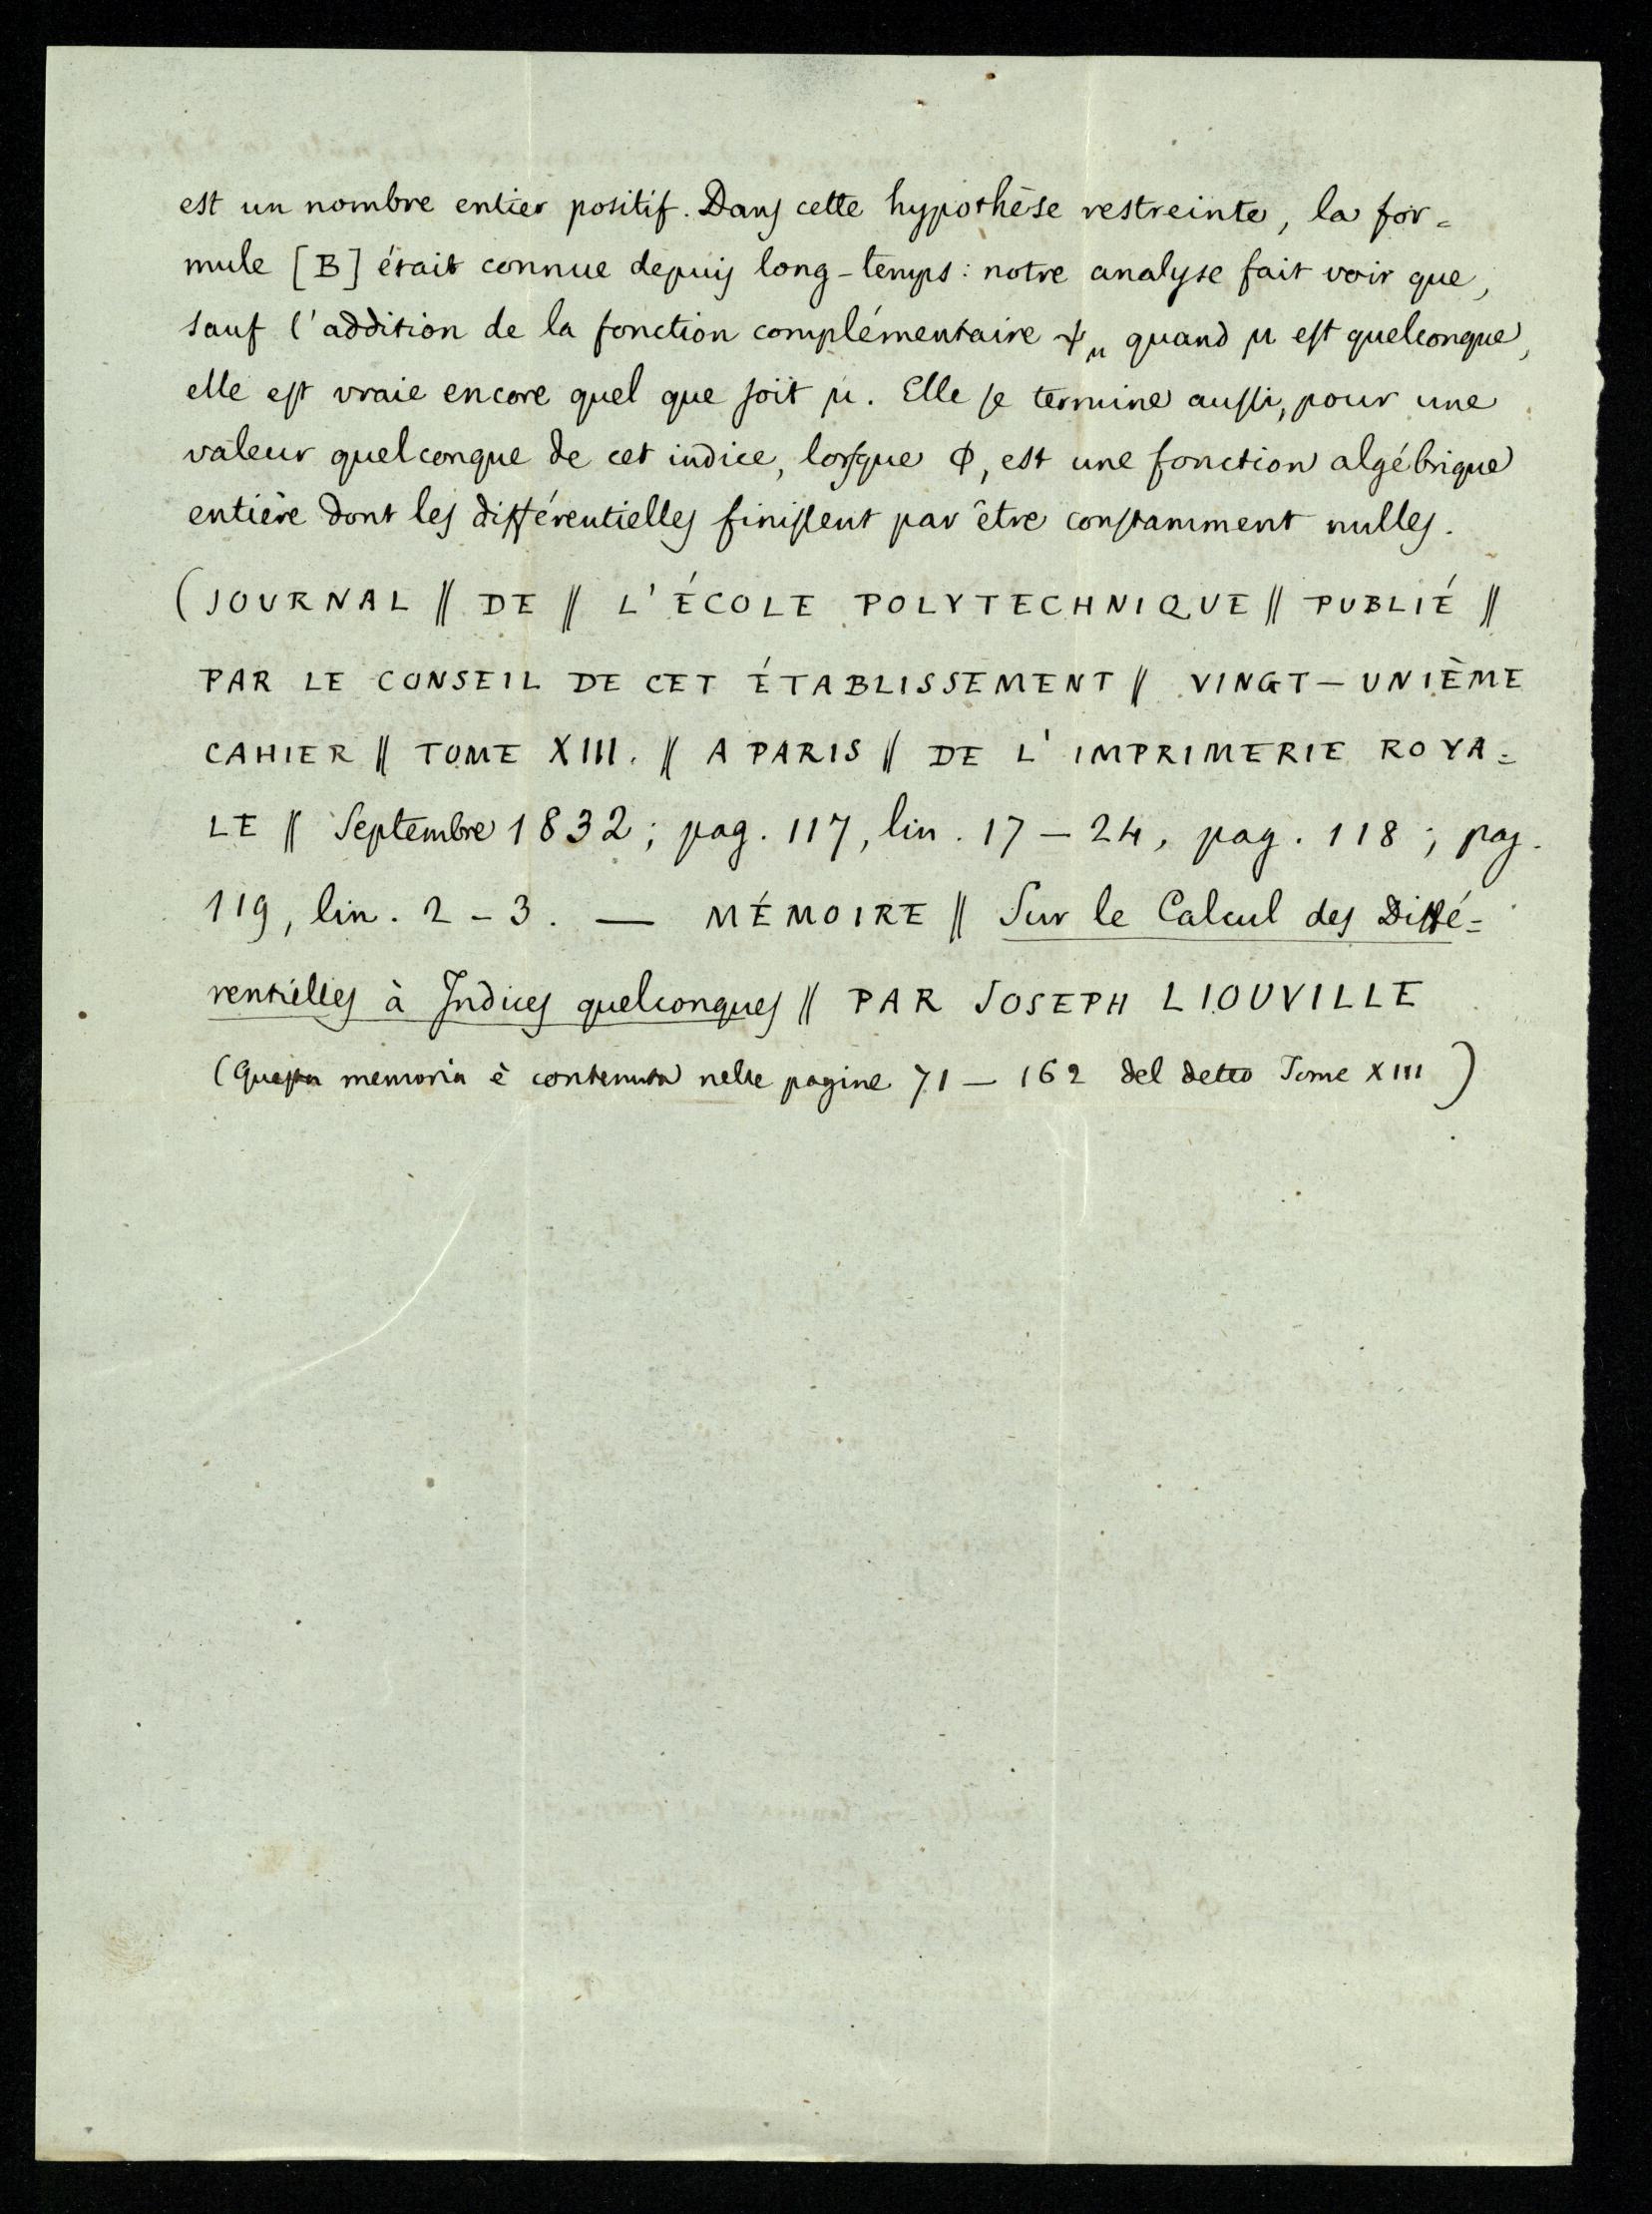 est un nombre entier positif. Dans cette hypothèse restreinte, la for=
mule [B] était connue depuis long-temps: notre analyse fait voir que,
sauf l'addition de la fonction complémentaire ψ_μ quand μ est quelconque,
elle est vraie encore quel que soit μ. Elle se termine aussi, pour une
valeur quelconque de cet indice, lorsque φ, est une fonction algébrique
entière dont les différentielles finissent par être constamment nulles.
(JOURNAL || DE || L'ÉCOLE POLYTECHNIQUE || PUBLIÉ ||
PAR LE CONSEIL DE CET ÉTABLISSEMENT || VINGT-UNIÈME
CAHIER || TOME XIII. || A PARIS || DE L'IMPRIMERIE ROYA=
LE || Septembre 1832; pag. 117, lin. 17-24, pag. 118; pag.
119, lin. 2-3. — MÉMOIRE || Sur le Calcul des Diffé=
rentielles à Indices quelconques || PAR JOSEPH LIOUVILLE
(Questa memoria è contenuta nelle pagine 71-162 del detto Tome XIII)